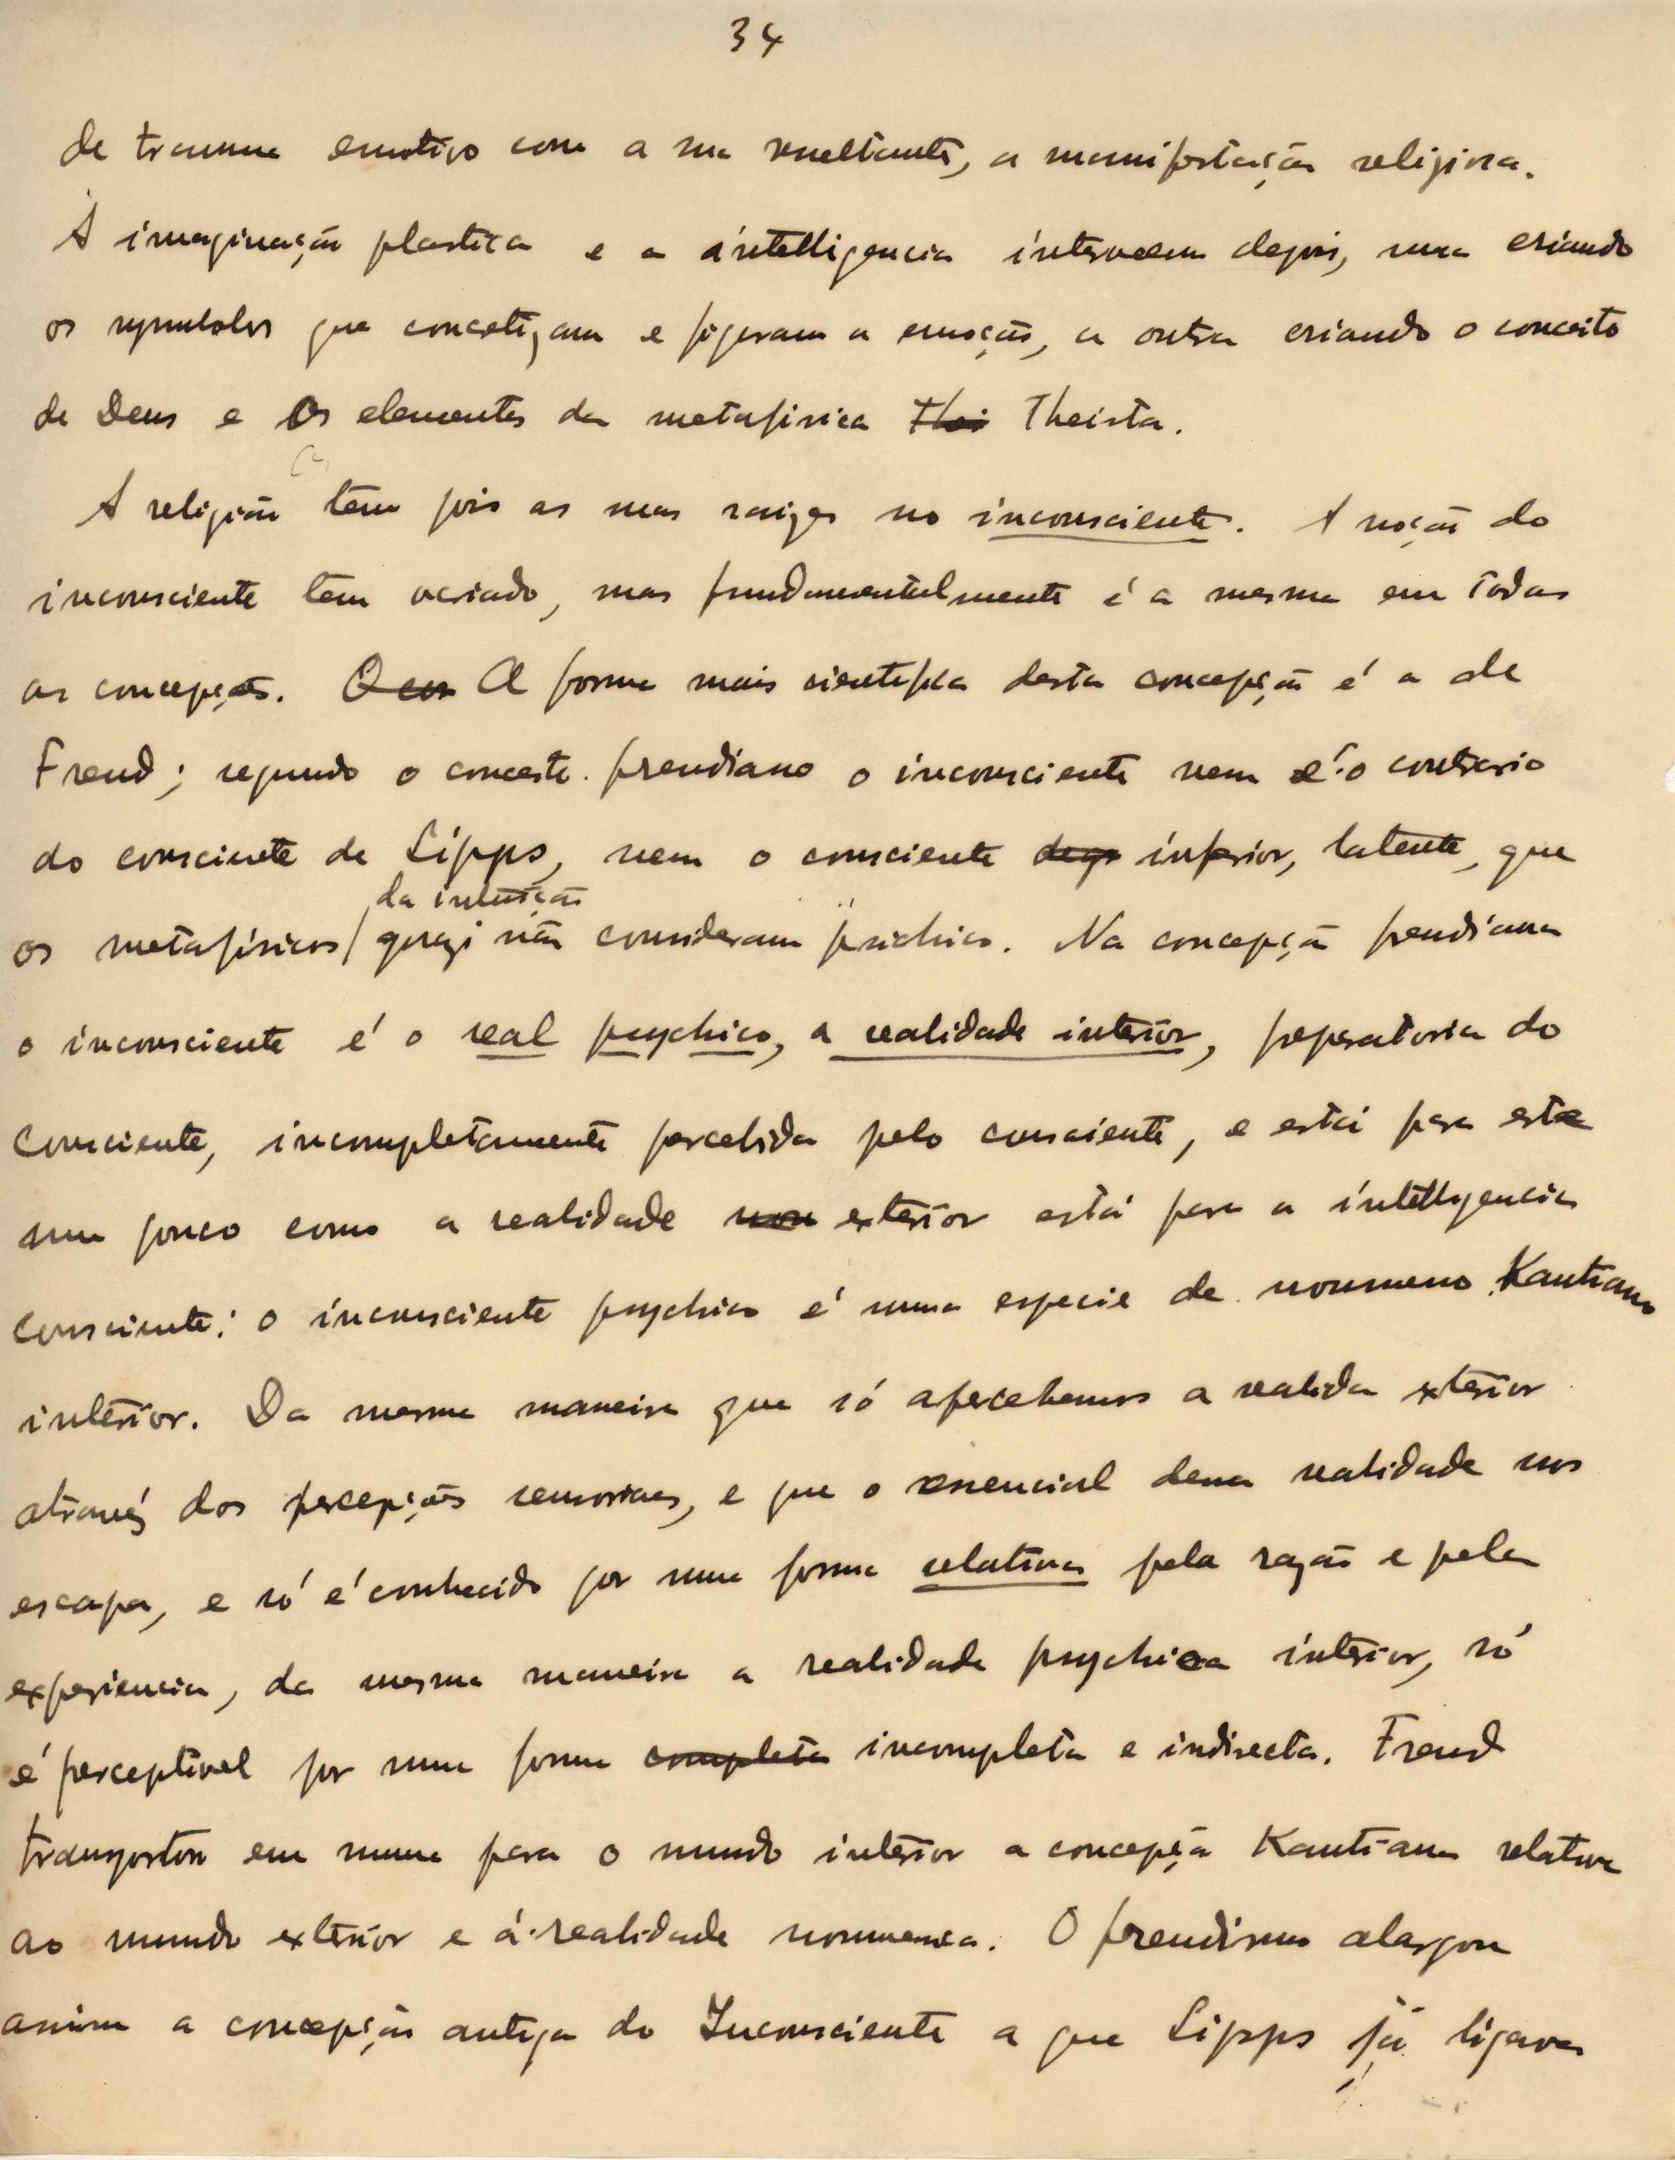 34
de trauma emotivo com a sua resultante, a manifestação religiosa.
A imaginação plastica e a intelligencia interveem depois, uma criando
os symbolos que concretizam e figuram a emoção, a outra criando o conceito
de Deus e os elementos da metafisica Thei Theista.
A religião tem pois as suas raizes no inconsciente. A noção do
inconsciente tem variado, mas fundamentalmente é a mesma em todas
as concepções. O con A forma mais cientifica desta concepção é a de
Freud; segundo o conceito freudiano o inconsciente nem é o contrario
do consciente de Lipps, nem o consciente inferior, latente, que
da intuição
os metafisicos não consideram psichico. Na concepção freudiana
o inconsciente é o real psychico, a realidade interior, preparatoria do
consciente, incompletamente percebida pelo consciente, e está para este
um pouco como a realidade exterior está para a intelligencia
consciente: o inconsciente psychico é uma especie de noumeno Kantiano
interior. Da mesma maneira que só apercebemos a realida exterior
através dos percepções sensoriaes, e que o essencial dessa realidade nos
escapa, e só é conhecido por uma forma relativa pela razão e pela
experiencia, da mesma maneira a realidade psychica interior, só
é perceptivel por uma forma completa incompleta e indirecta. Freud
transportou em suma para o mundo interior a concepção Kantiana relativa
ao mundo exterior e á realidade noumenica. O freudismo alargou
assim a concepção antiga do Inconsciente a que Lipps já ligava